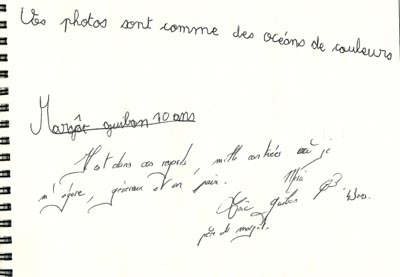 Vos photos sont comme des océans de couleurs
Margot 10 ans
Il est dans vos regards, mille contrées où je
m'égare, généreux et en paix.
père de margot.